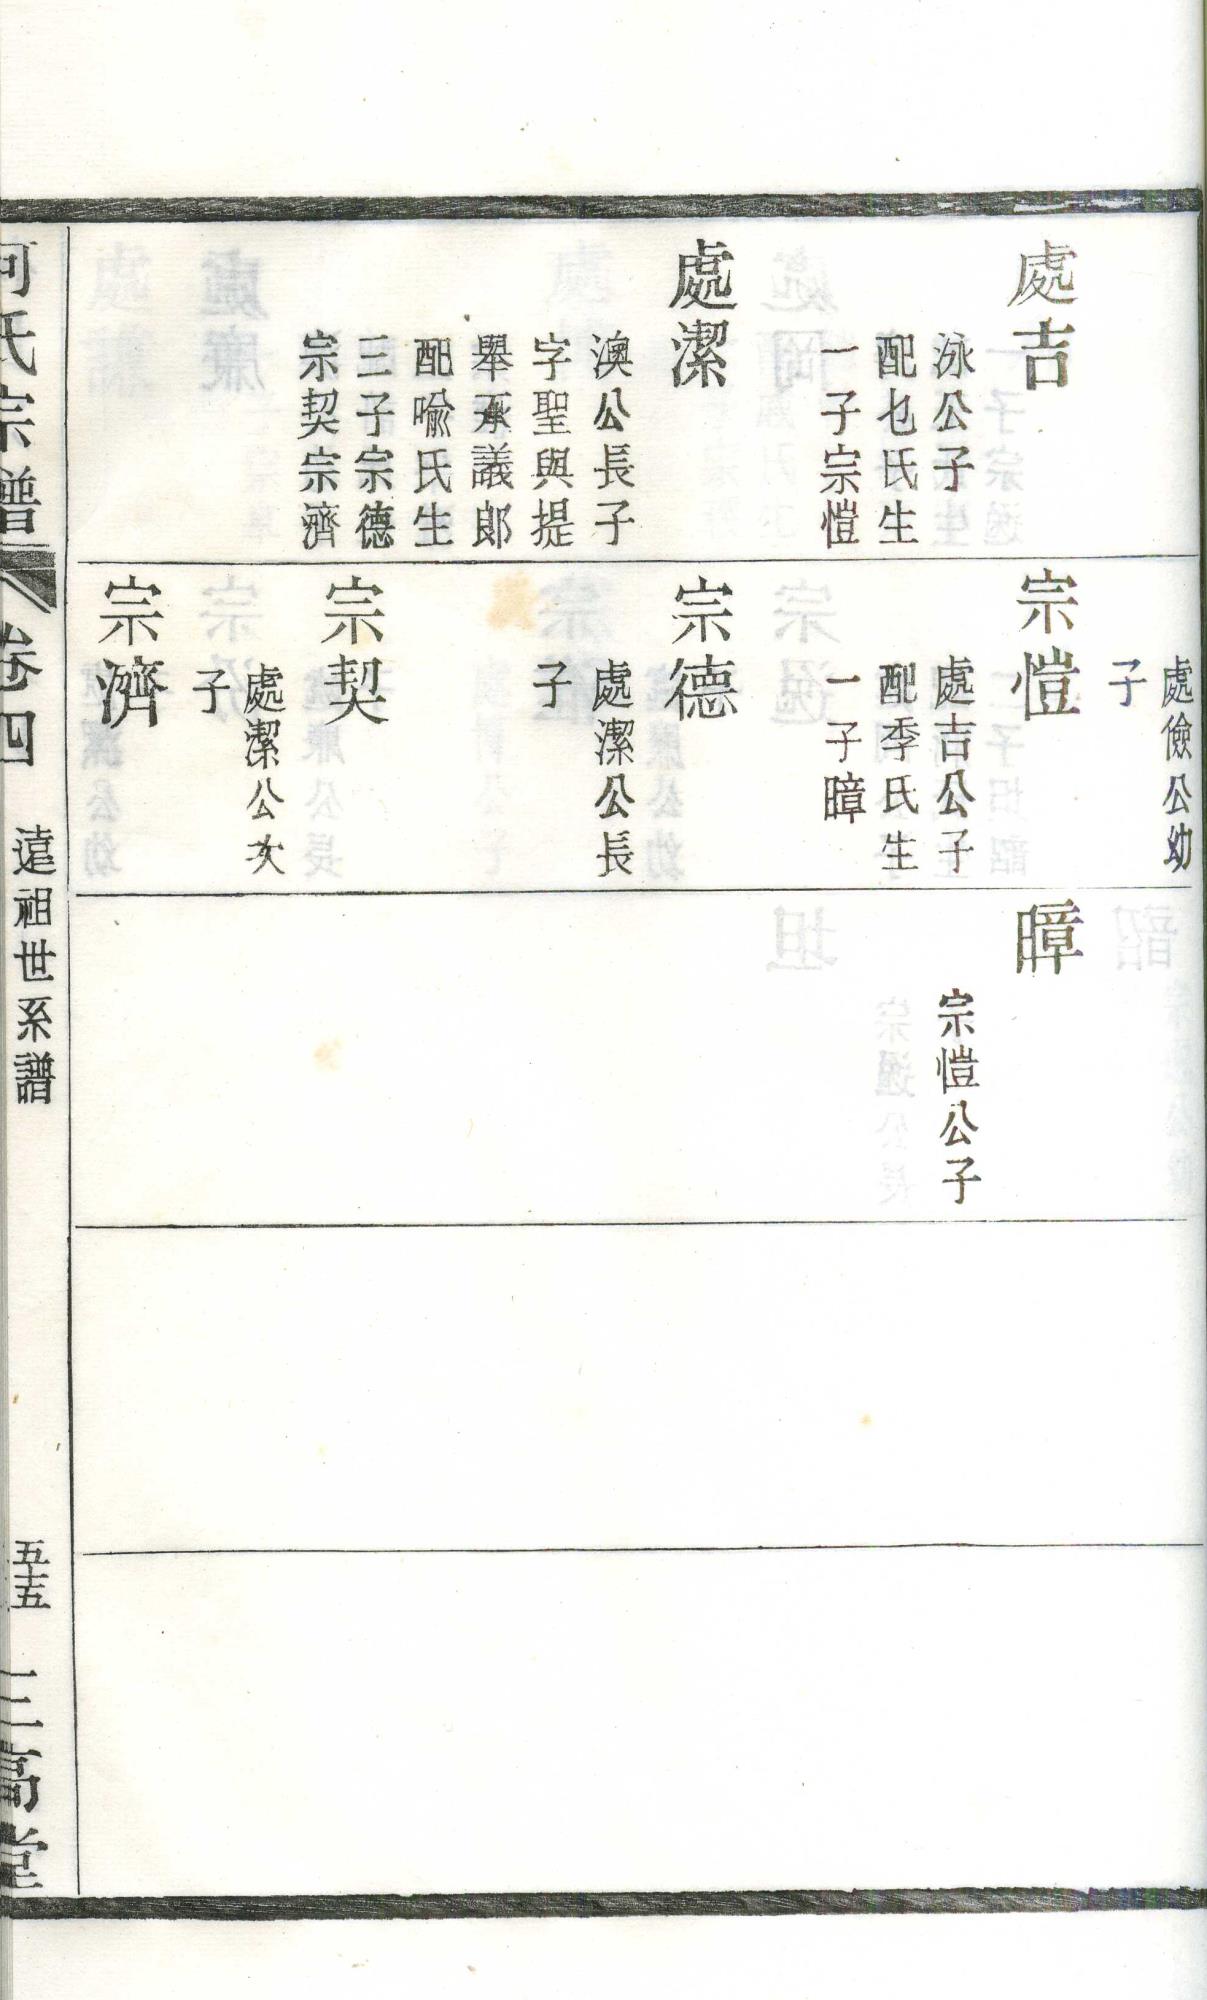 處吉
泳公子
配乜氏生
一子宗愷
處潔
澳公長子
字聖與提
舉承議郎
配喻氏生
三子宗德
宗契宗濟
處儉公幼
子
宗愷
處吉公子
配季氏生
一子暲
宗德
處潔公長
子
宗契
處潔公次
子
宗濟
暲
宗愷公子
何氏宗譜
卷四
遠祖世系譜
五十五
三高堂